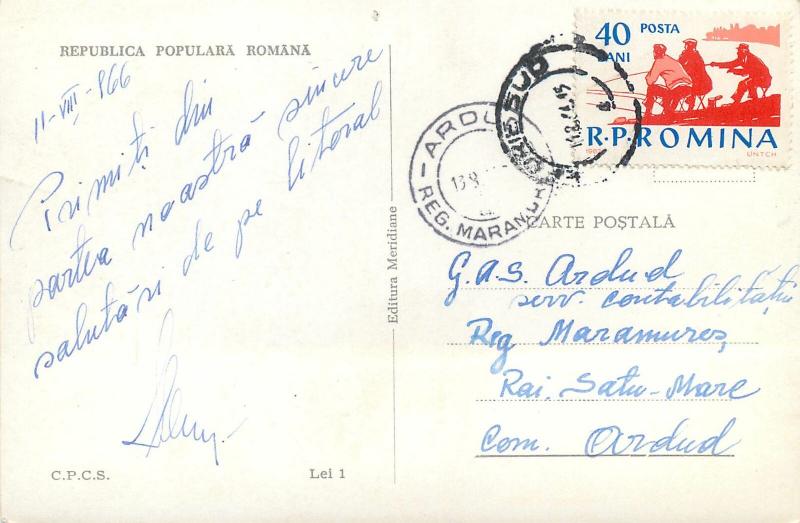 REPUBLICA POPULARĂ ROMÂNĂ
11-VIII-966
Primiți din
partea noastră sincere
salutări de pe litoral
C.P.C.S.
Lei 1
Editura Meridiane
40 POSTA
BANI
R.P.ROMINA
UNTCH
ARDUD
REG. MARAMUR
CARTE POȘTALĂ
G.A.S. Ardud
serv. contabilității
Reg Maramureș,
Rai. Satu-Mare
Com. Ardud